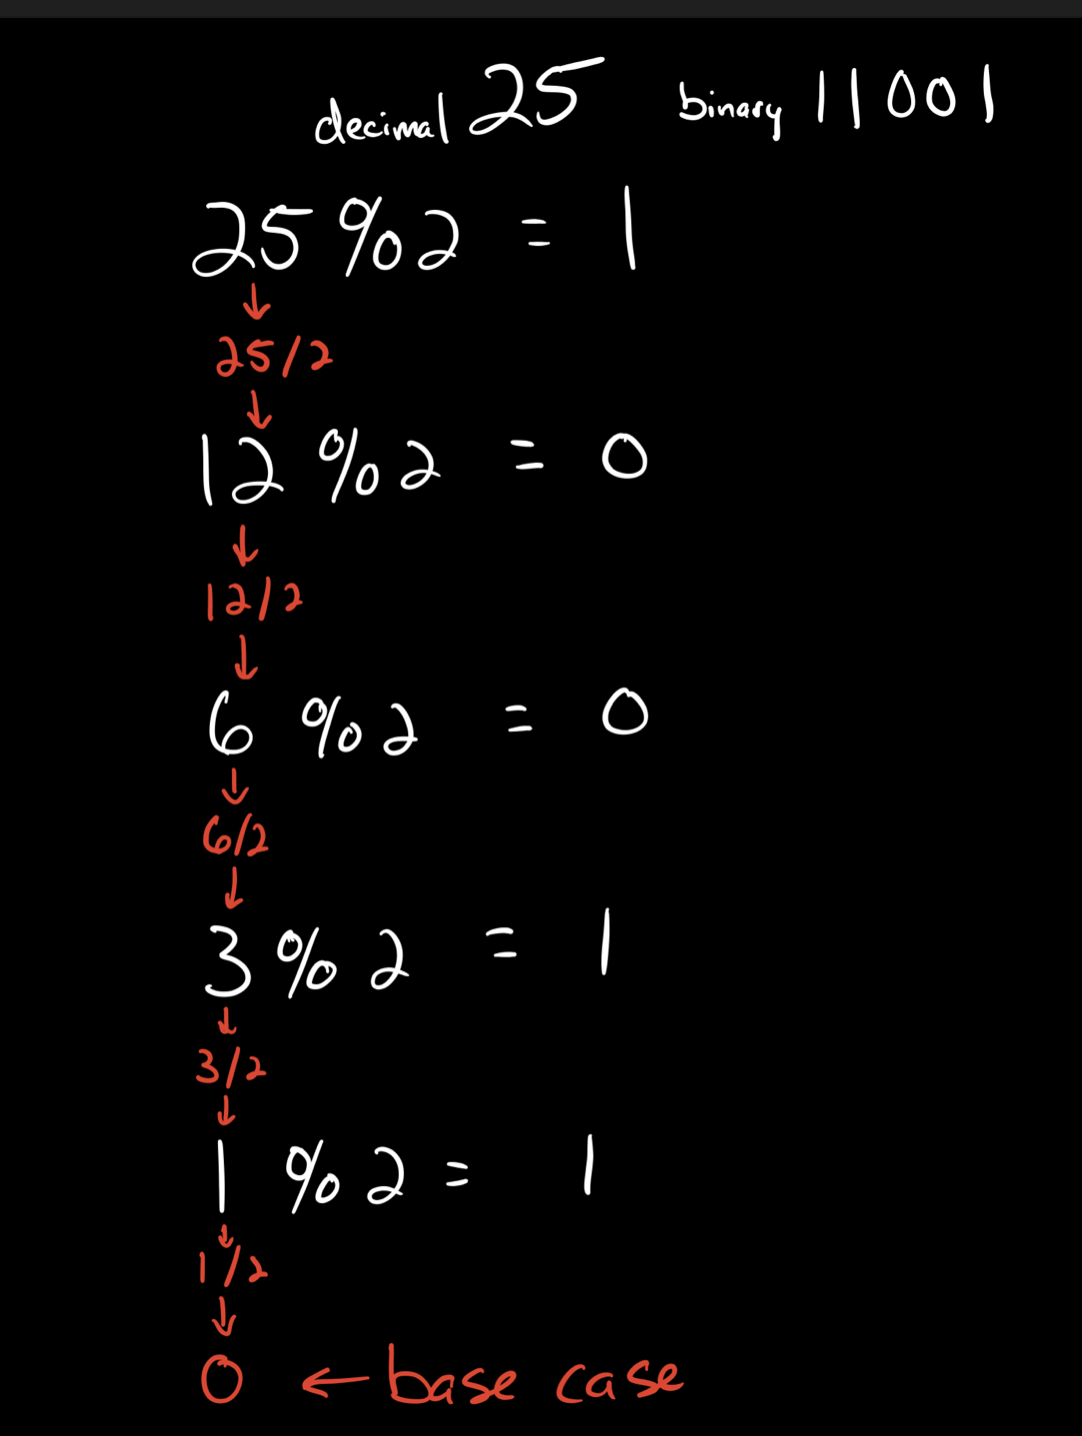 decimal 25 binary 11001
25 % 2 = 1
↓
25/2
↓
12 % 2 = 0
↓
12/2
↓
6 % 2 = 0
↓
6/2
↓
3 % 2 = 1
↓
3/2
↓
1 % 2 = 1
↓
1/2
↓
0 ← base case